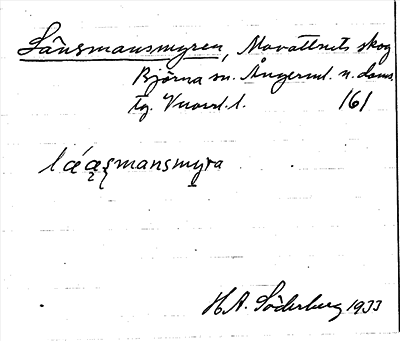 Länsmansmyren, Movattnets skog
Björna sn. Ångerml. n. doms.
tg. Vnord. l. 161
lǽæ̨ʂmansmyra
H.A. Söderberg 1933